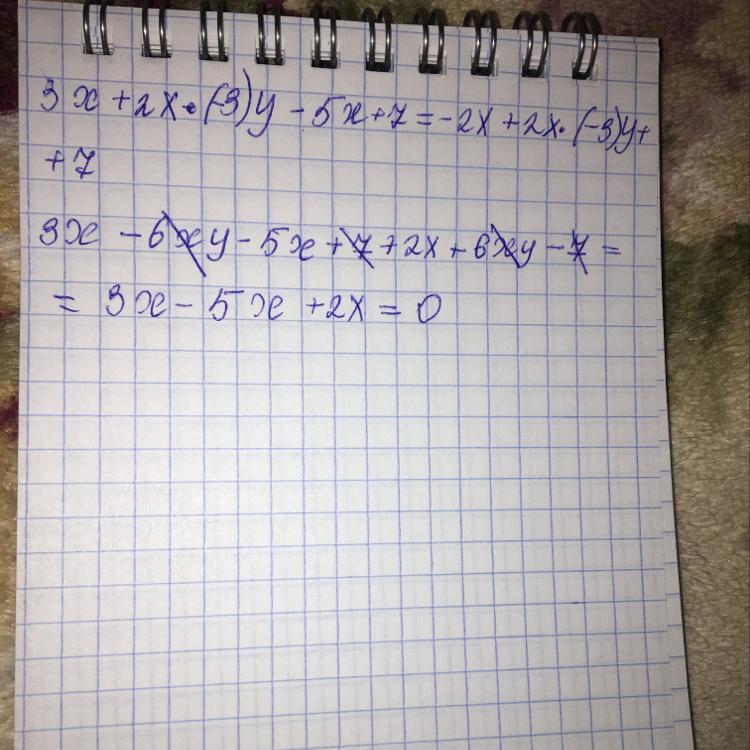 3x + 2x · (-3)y - 5x + 7 = -2x + 2x · (-3)y +
+ 7
3x - 6xy - 5x + 7 + 2x + 6xy - 7 =
= 3x - 5x + 2x = 0